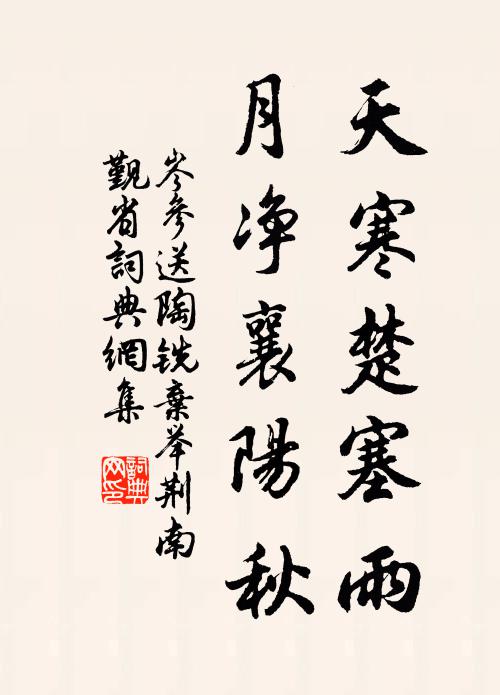 天寒楚塞雨
月净襄陽秋
岑參送陶銑棄举荆南
覲省詞典網集
詞典
网印